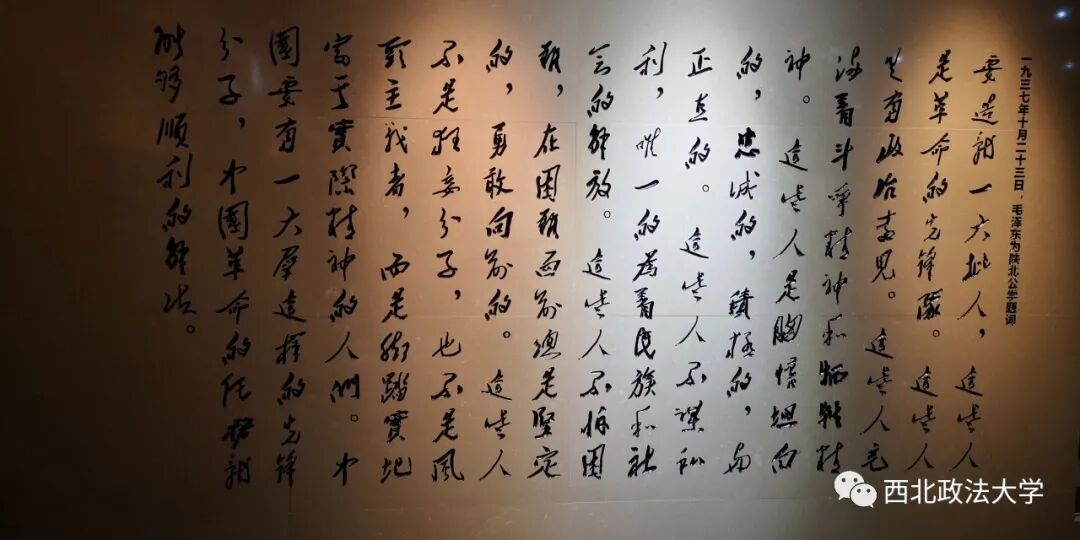 一九三七年十月二十三日，毛泽东为陕北公学题词
要造就一大批人，這些人
是革命的先鋒隊。這些人
具有政治遠見。這些人充
满着斗爭精神和牺牲精
神。這些人是胸懷坦白
的，忠誠的，積極的，与
正直的。這些人不謀私
利，唯一的為着民族和社
会的解放。這些人不怕困
難，在困難面前總是堅定
的，勇敢向前的。這些人
不是狂妄分子，也不是風
頭主義者，而是脚踏實地
富于實際精神的人們。中
國要有一大群這樣的先鋒
分子，中國革命的任務就
能够順利的解决。
西北政法大学